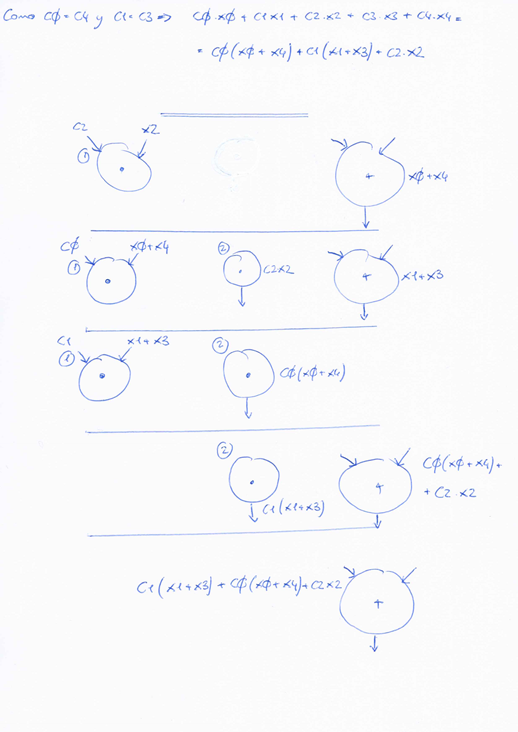 Como CØ=C4 y C1=C3 => CØ.XØ + C1X1 + C2.X2 + C3.X3 + C4.X4 =
= CØ(XØ+X4)+C1(X1+X3)+C2.X2
C2 X2
① • + XØ+X4
CØ XØ+X4 ②
① • • C2X2 + X1+X3
C1 X1+X3 ②
① • • CØ(XØ+X4)
② CØ(XØ+X4)+
• + + C2.X2
C1(X1+X3)
C1(X1+X3)+CØ(XØ+X4)+C2X2 +